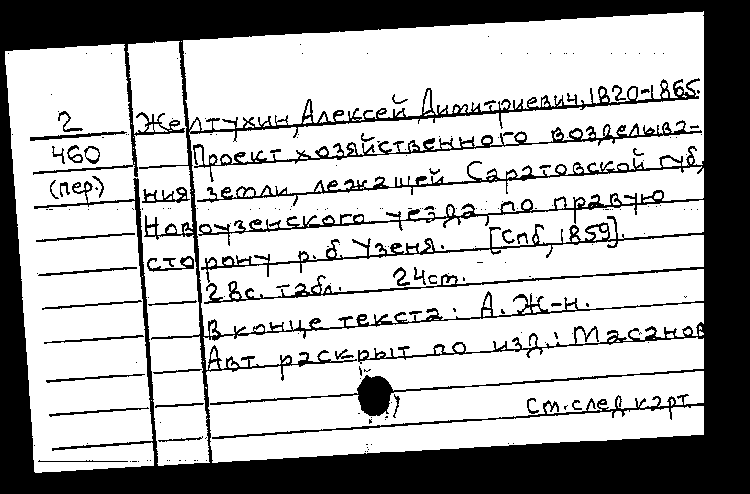 2 Желтухин, Алексей Димитриевич, 1820-1865.
460 Проект хозяйственного возделыва-
(пер.) ния земли, лежащей Саратовской губ,
Новоузенского уезда, по правую
сторону р. б. Узеня. [Спб, 1859].
2 вс. табл. 24 ст.
В конце текста: А. Ж-н.
Авт. раскрыт по изд.: Масанов
См. след карт.